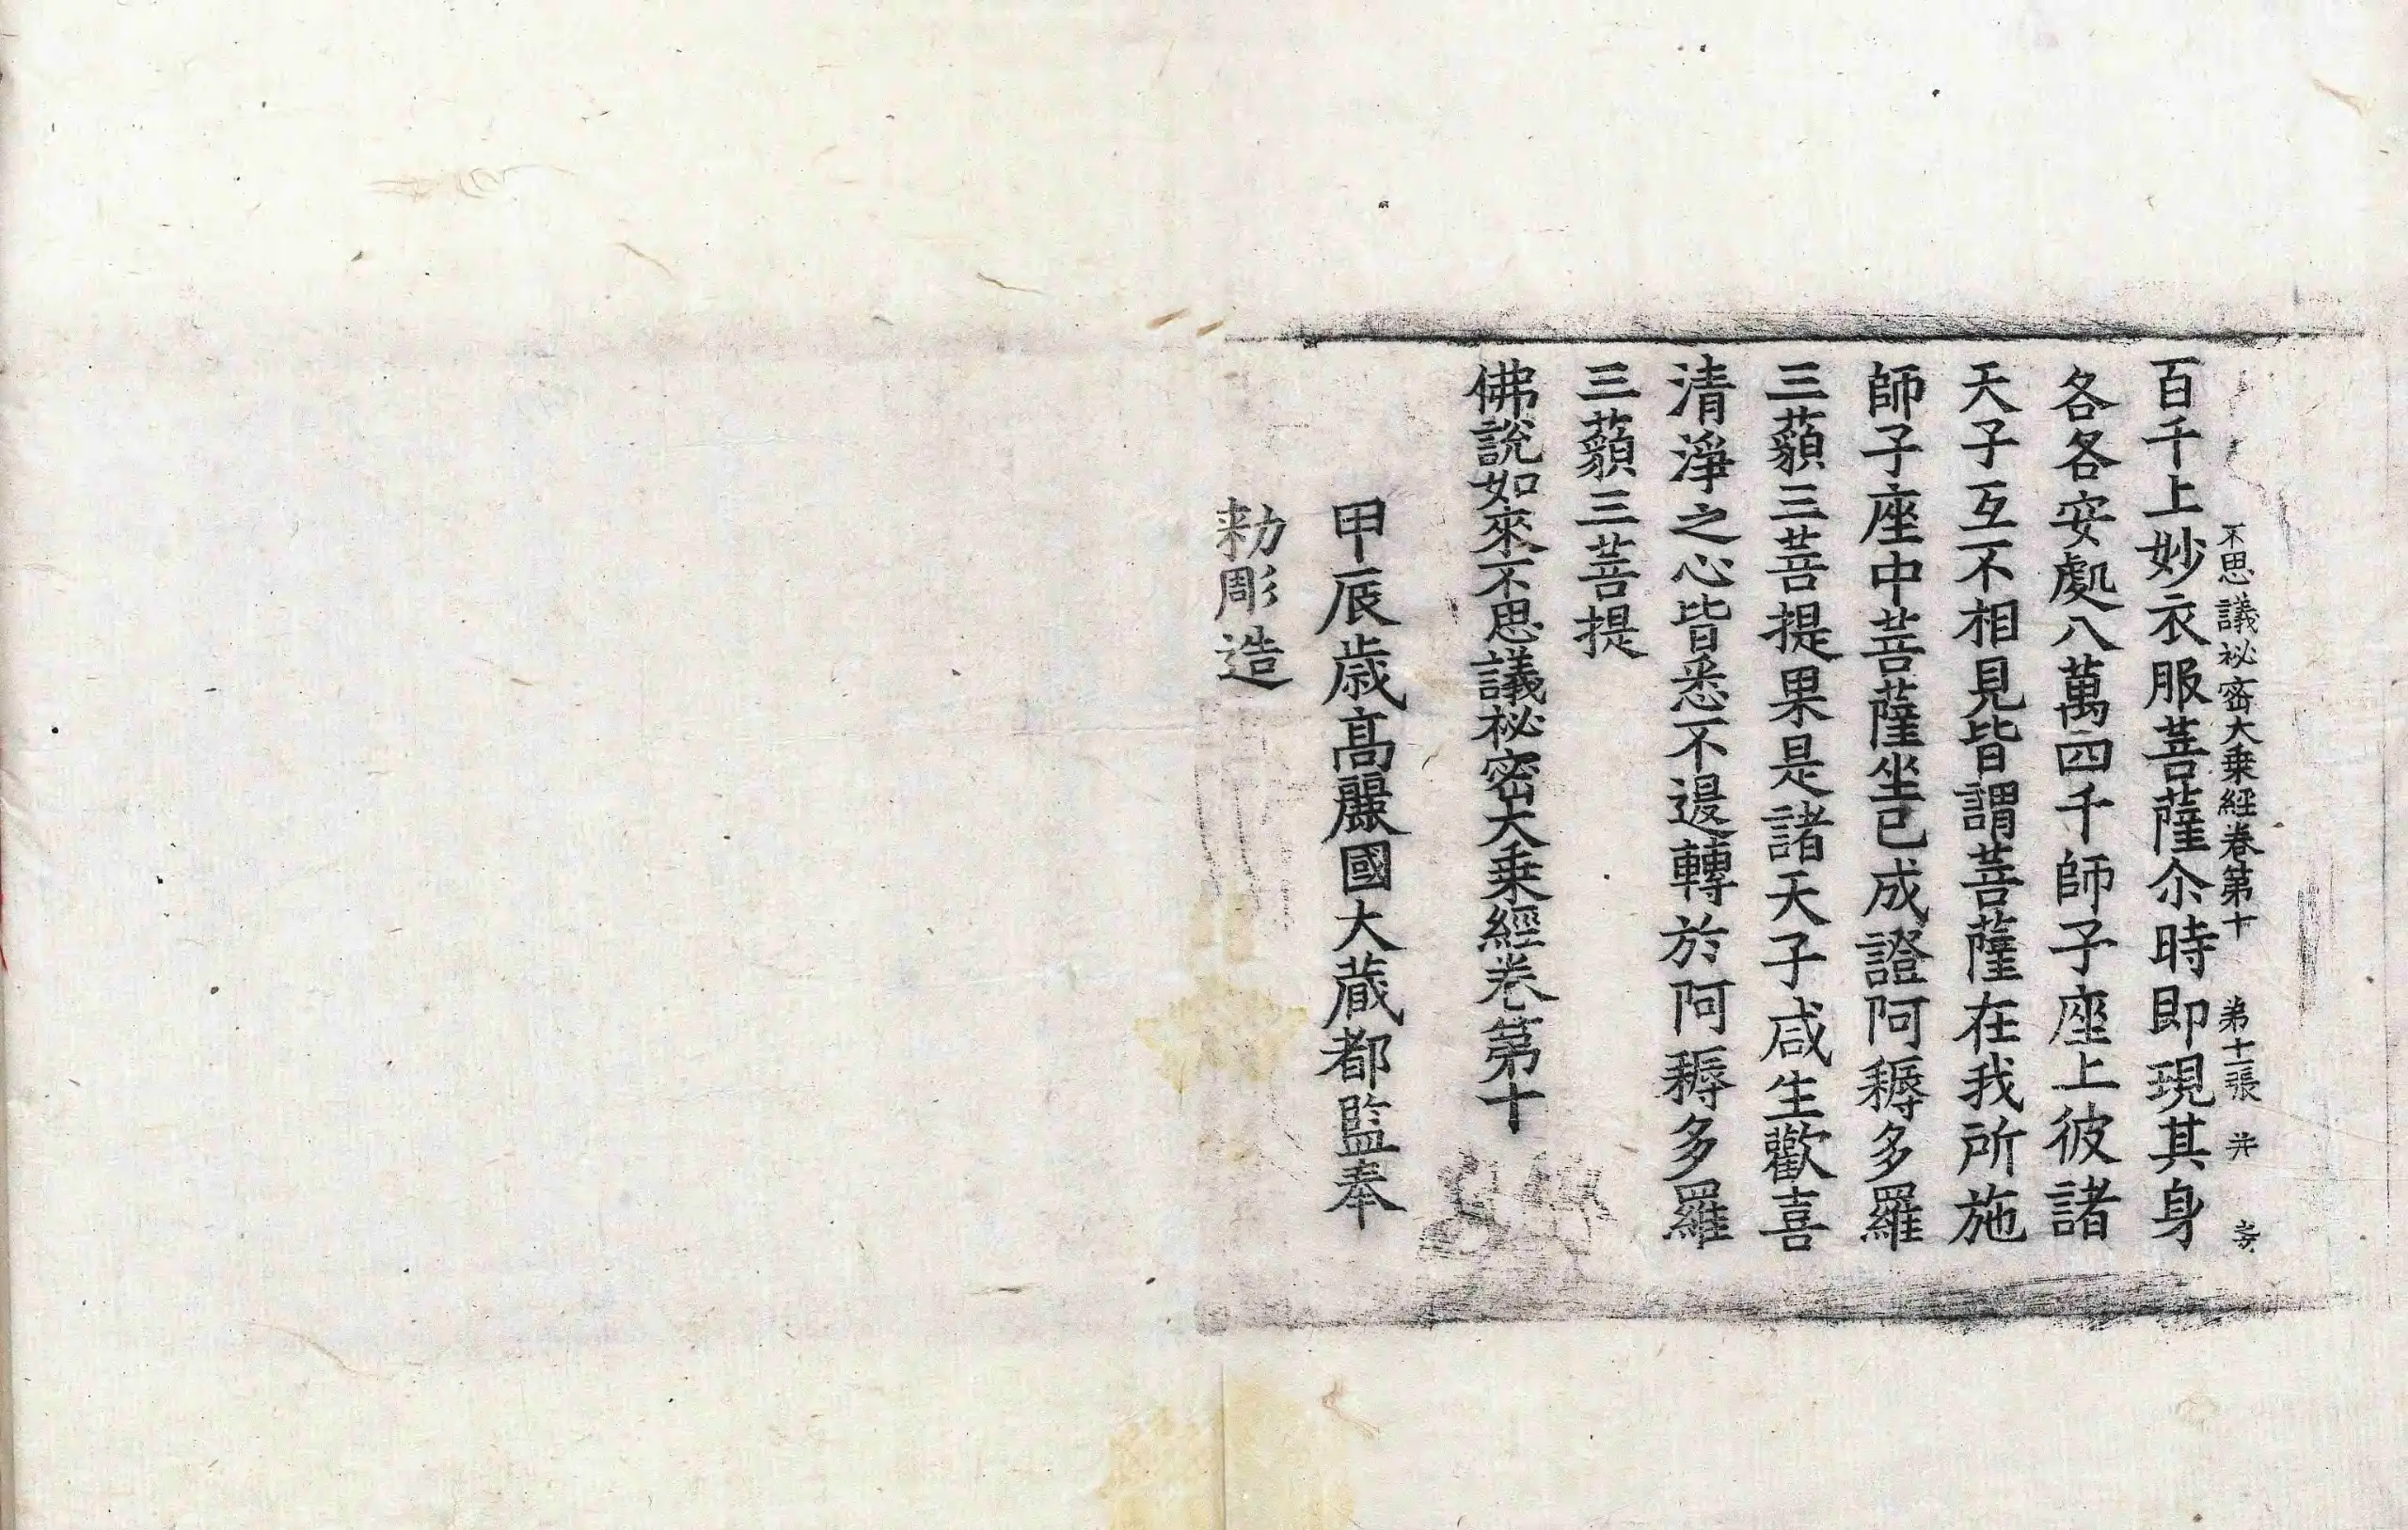 不思議祕密大乗經卷第十 第十二張
百千上妙衣服菩薩尒時即現其身
各各安處八萬四千師子座上彼諸
天子互不相見皆謂菩薩在我所施
師子座中菩薩坐已成證阿耨多羅
三藐三菩提果是諸天子咸生歡喜
清淨之心皆悉不退轉於阿耨多羅
三藐三菩提
佛說如來不思議祕密大乗經卷第十
甲辰歳髙麗國大藏都監奉
勑彫造